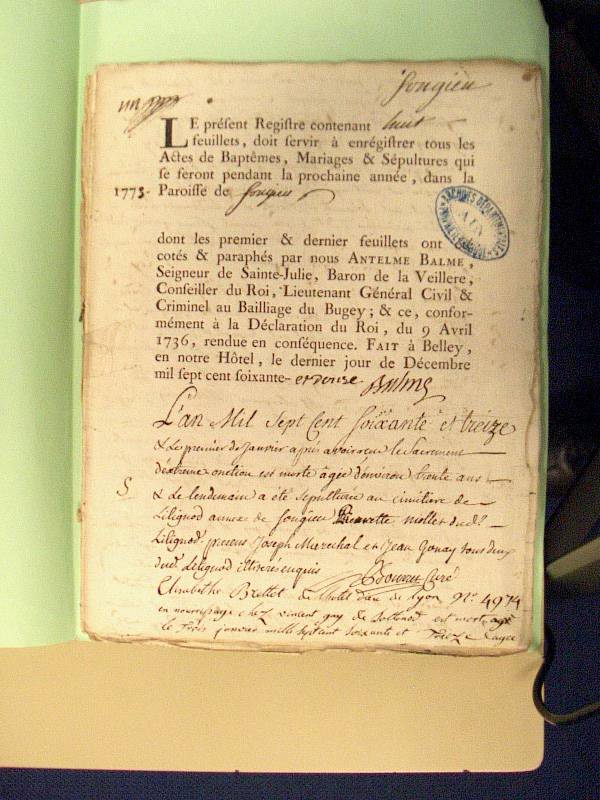 Songieu
LE préſent Regiſtre contenant huit
feuillets, doit ſervir à enrégiſtrer tous les
Actes de Baptêmes, Mariages & Sépultures qui
ſe feront pendant la prochaine année, dans la
1773. Paroiſſe de Songieu
dont les premier & dernier feuillets ont
cotés & paraphés par nous ANTELME BALME,
Seigneur de Sainte-Julie, Baron de la Veillere,
Conſeiller du Roi, Lieutenant Général Civil &
Criminel au Bailliage du Bugey; & ce, confor-
mément à la Déclaration du Roi, du 9 Avril
1736, rendue en conſéquence. FAIT à Belley,
en notre Hôtel, le dernier jour de Décembre
mil ſept cent ſoixante- et douze Balme
L'an Mil Sept Cent Soixante et treize
& le premier de janvier après avoir reçu le Sacrement
d'extreme onction est morte agée d'environ trente ans
S & le lendemain a été sepulturée au cimitiere de
Lilignod annexe de Songieu Pierrette miollet dud.
Lilignod. presens Joseph Marechal et Jean Gonay tous deux
dud. Lilignod illiterés enquis Bonnet Curé
Elisabethe Brettet de l'hotel Dieu de Lyon N.° 4974
en nourrissage chez vincent gay de Sothonod est morte
le trois janvier mille septant soixante et treize agee